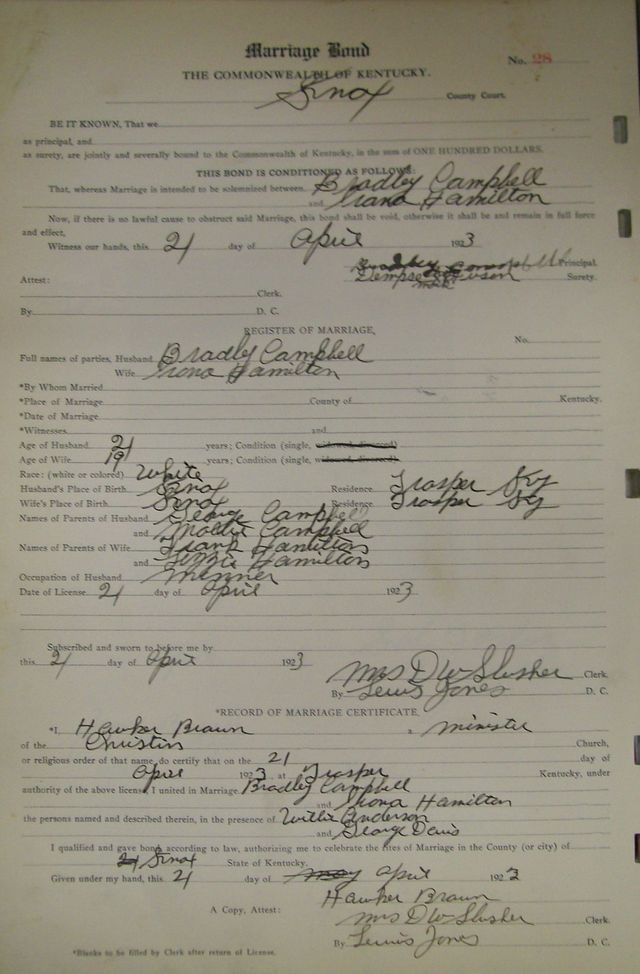 Marriage Bond
No. 28
THE COMMONWEALTH OF KENTUCKY.
Knox County Court.
BE IT KNOWN, That we
as principal, and
as surety, are jointly and severally bound to the Commonwealth of Kentucky, in the sum of ONE HUNDRED DOLLARS.
THIS BOND IS CONDITIONED AS FOLLOWS:
That, whereas Marriage is intended to be solemnized between Bradley Campbell
and Hamilton
Now, if there is no lawful cause to obstruct said Marriage, this bond shall be void, otherwise it shall be and remain in full force
and effect,
Witness our hands, this 21 day of April 1923
Bradley Campbell Principal.
Dempse Surety.
Attest:
mark
Clerk.
By D. C.
REGISTER OF MARRIAGE,
No.
Full names of parties, Husband Bradley Campbell
Wife Hamilton
*By Whom Married
*Place of Marriage County of Kentucky.
*Date of Marriage
*Witnesses and
Age of Husband 21 years; Condition (single, widowed, divorced)
Age of Wife 19 years; Condition (single, widowed, divorced)
Race: (white or colored) White
Husband's Place of Birth Knox Residence Trosper Ky
Wife's Place of Birth Knox Residence Trosper Ky
Names of Parents of Husband George Campbell
and Mollie Campbell
Names of Parents of Wife Frank Hamilton
and Lizzie Hamilton
Occupation of Husband Minner
Date of License 21 day of April 1923
Subscribed and sworn to before me by
this 21 day of April 1923
Mrs D W Slusher Clerk.
By Lewis Jones D. C.
*RECORD OF MARRIAGE CERTIFICATE.
*I, Hawker Braun a minister
of the Christin Church,
or religious order of that name, do certify that on the 21 day of
April 1923 at Trosper Kentucky, under
authority of the above license, I united in Marriage Bradley Campbell
and Hamilton
the persons named and described therein, in the presence of Willie Anderson
and George Davis
I qualified and gave bond according to law, authorizing me to celebrate the rites of Marriage in the County (or city) of
21 Knox State of Kentucky.
Given under my hand, this 21 day of May April 1923
Hawker Braun
A Copy, Attest: Mrs D W Slusher Clerk.
By Lewis Jones D. C.
*Blanks to be filled by Clerk after return of License.